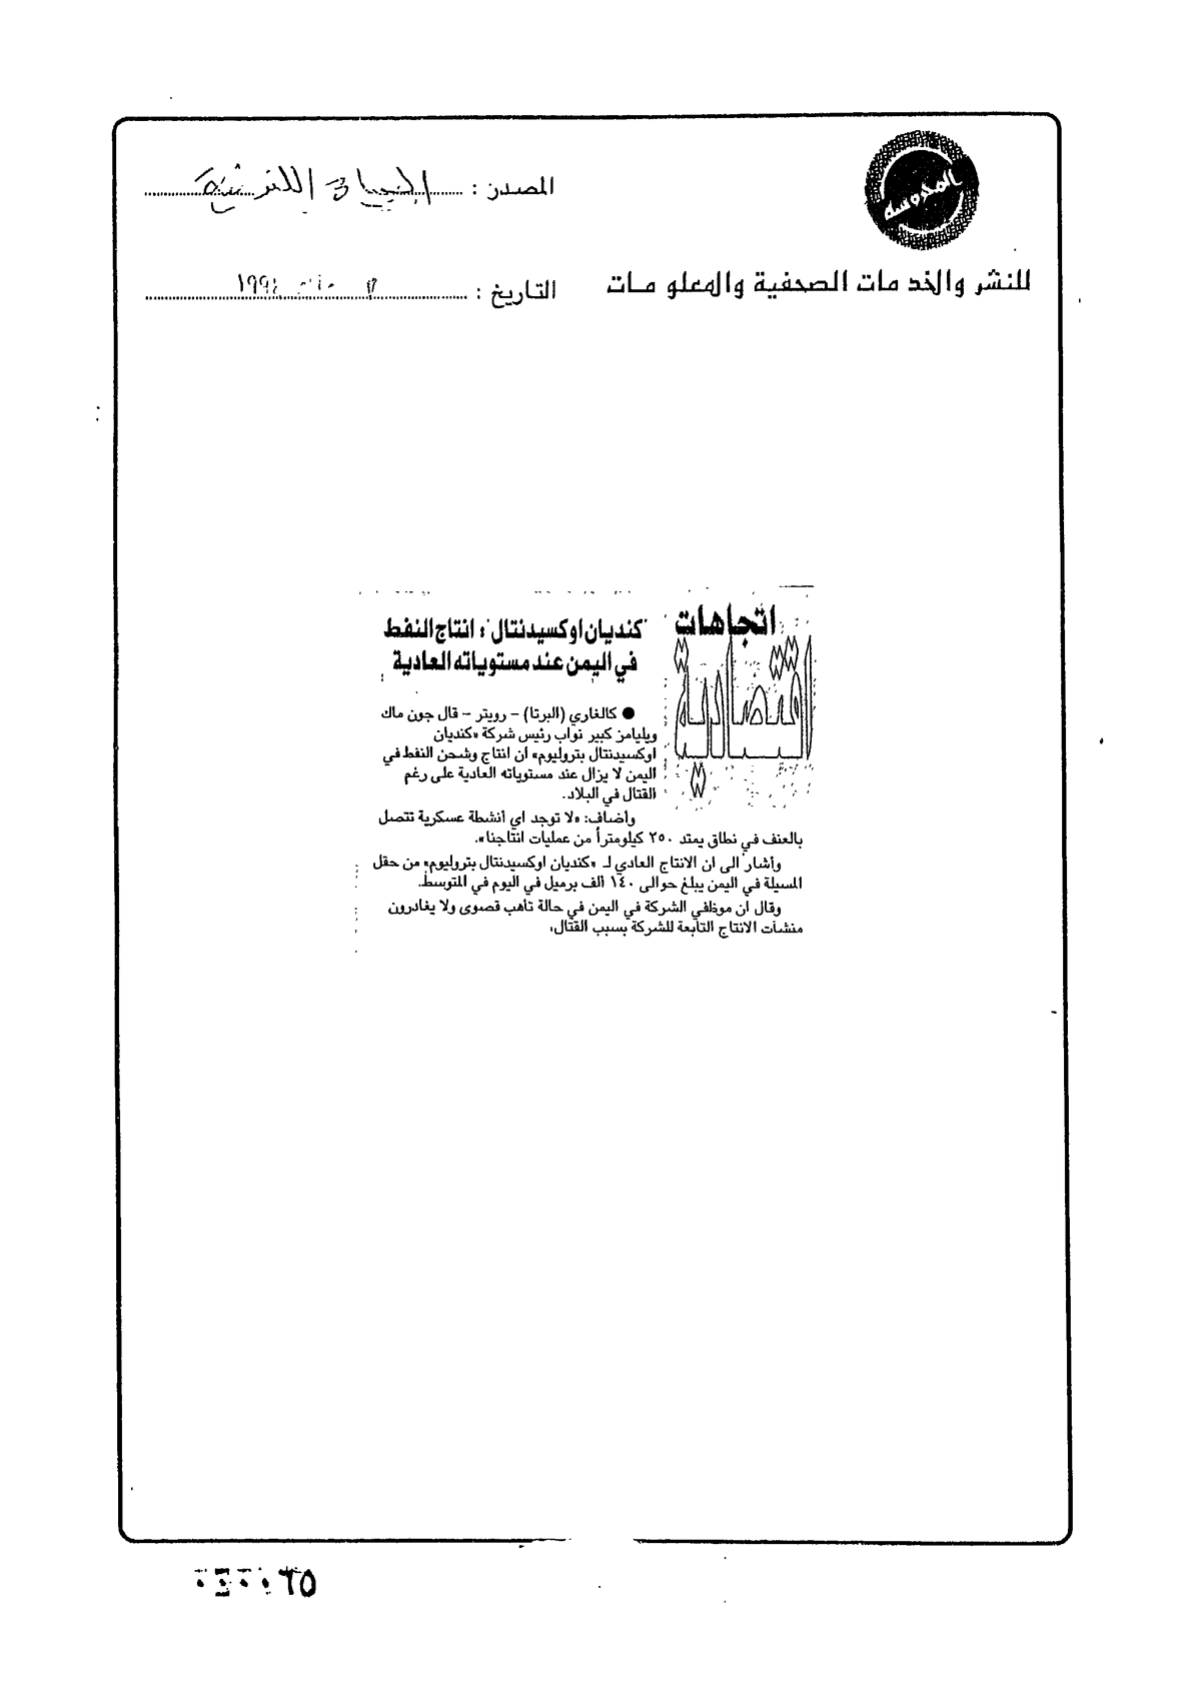 المحروسة
المصدر : الحياة اللندنية
للنشر والخدمات الصحفية والمعلومات
التاريخ : ١٩٩٤
اتجاهات
اقتصادية
"كنديان اوكسيدنتال": انتاج النفط
في اليمن عند مستوياته العادية
● كالغاري (البرتا) – رويتر – قال جون ماك
ويليامز كبير نواب رئيس شركة «كنديان
اوكسيدنتال بتروليوم» ان انتاج وشحن النفط في
اليمن لا يزال عند مستوياته العادية على رغم
القتال في البلاد.
وأضاف: «لا توجد اي أنشطة عسكرية تتصل
بالعنف في نطاق يمتد ٢٥٠ كيلومتراً من عمليات انتاجنا».
وأشار الى ان الانتاج العادي لـ «كنديان اوكسيدنتال بتروليوم» من حقل
المسيلة في اليمن يبلغ حوالى ١٤٠ ألف برميل في اليوم في المتوسط.
وقال ان موظفي الشركة في اليمن في حالة تأهب قصوى ولا يغادرون
منشآت الانتاج التابعة للشركة بسبب القتال.